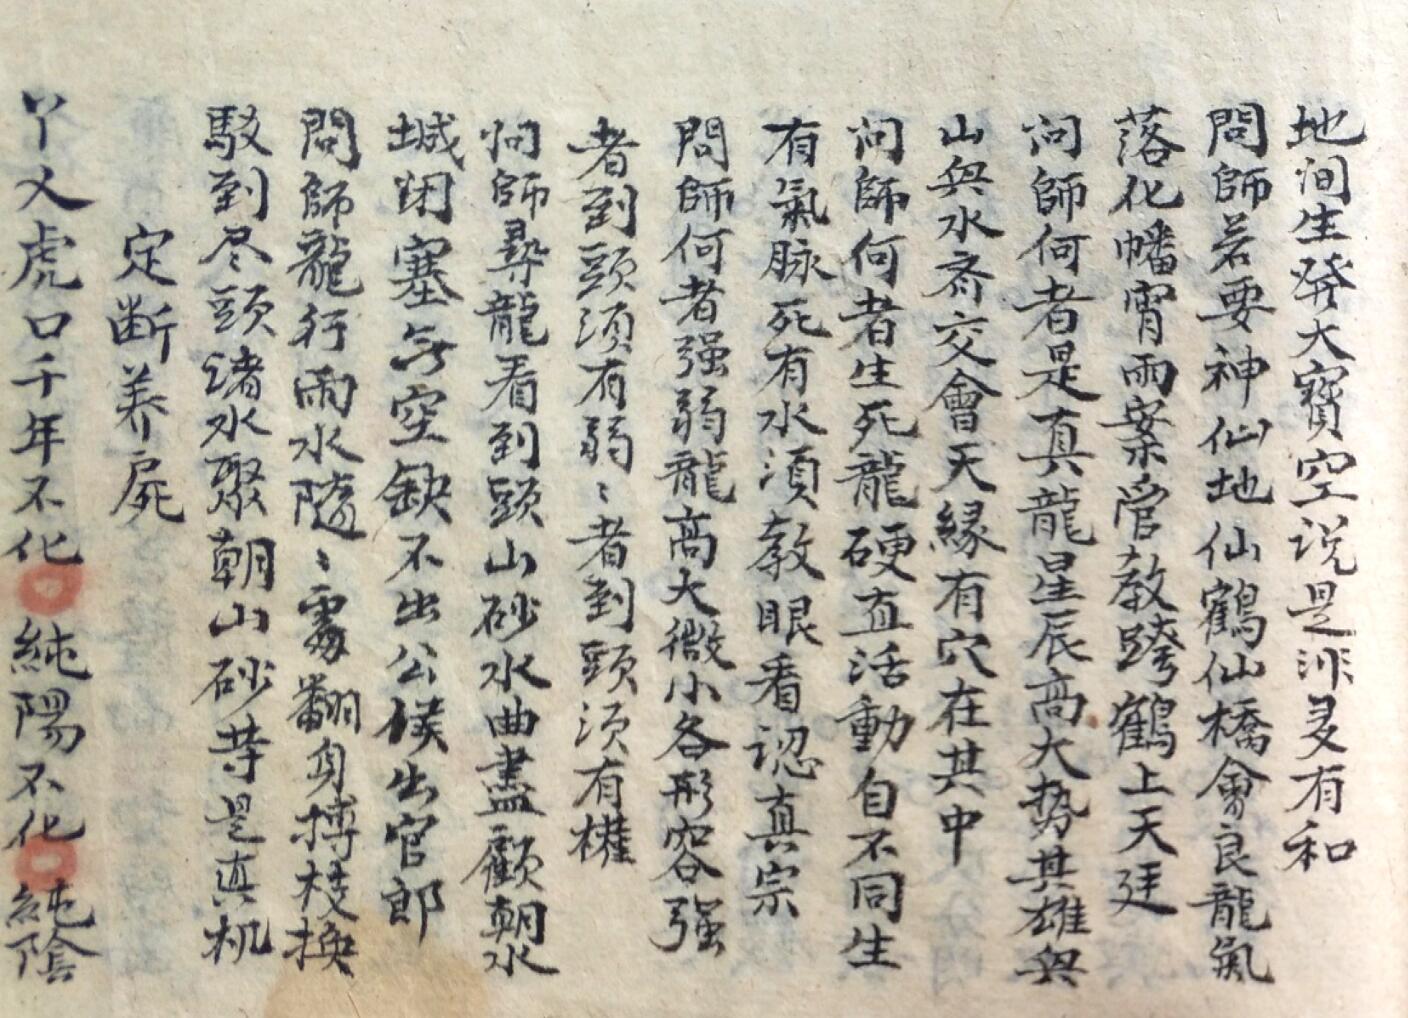 地间生發大寳空说是非多有和
問師若要神仙地仙鶴仙橋會良龍氣
落化幡宵雨案官教跨鶴上天廷
问師何者是真龍星辰高大势其雄與
山與水齐交會天緣有穴在其中
问師何者生死龍硬直活動自不同生
有氣脉死有水須教眼看認真宗
問師何者强弱龍高大微小各形容强
者到頭須有弱〻者到頭须有權
问師尋龍看到頭山砂水曲盡顧朝水
城闭塞無空缺不出公侯出官郎
問師龍行雨水隨〻雾翻身摶枝换
駁到尽頭諸水聚朝山砂昔是真机
定断养屍
丫义虎口千年不化 純陽不化 純陰